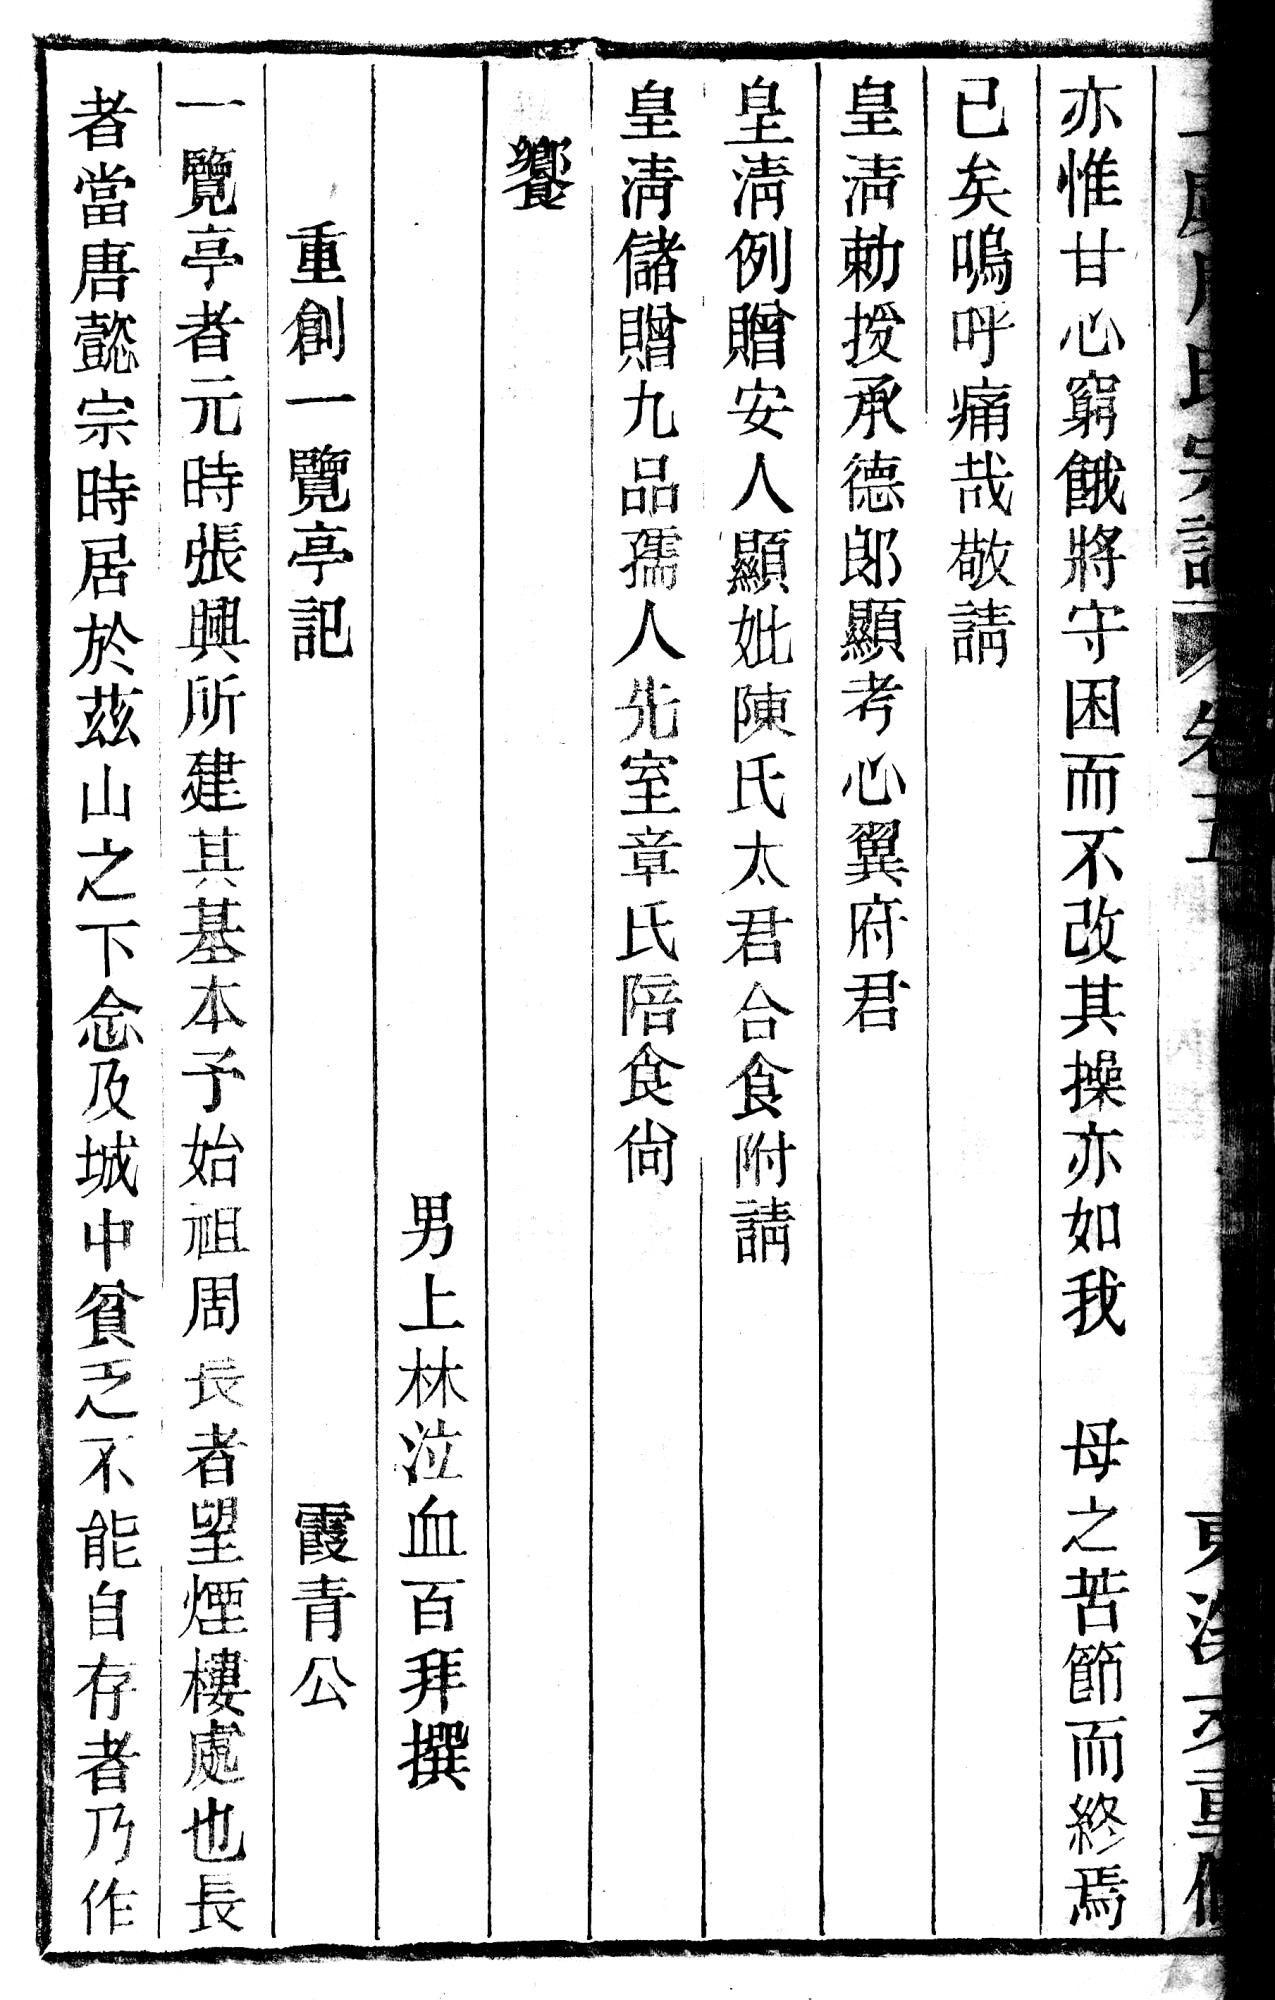 周氏宗譜 卷五 重修
亦惟甘心窮餓將守困而不改其操亦如我 母之苦節而終焉
已矣嗚呼痛哉敬請
皇清勅授承德郎顯考心翼府君
皇清例贈安人顯妣陳氏太君合食附請
皇清儲贈九品孺人先室章氏陪食尙
饗
男上林泣血百拜撰
重創一覽亭記 霞青公
一覽亭者元時張興所建其基本予始祖周長者望煙樓處也長
者當唐懿宗時居於茲山之下念及城中貧乏不能自存者乃作